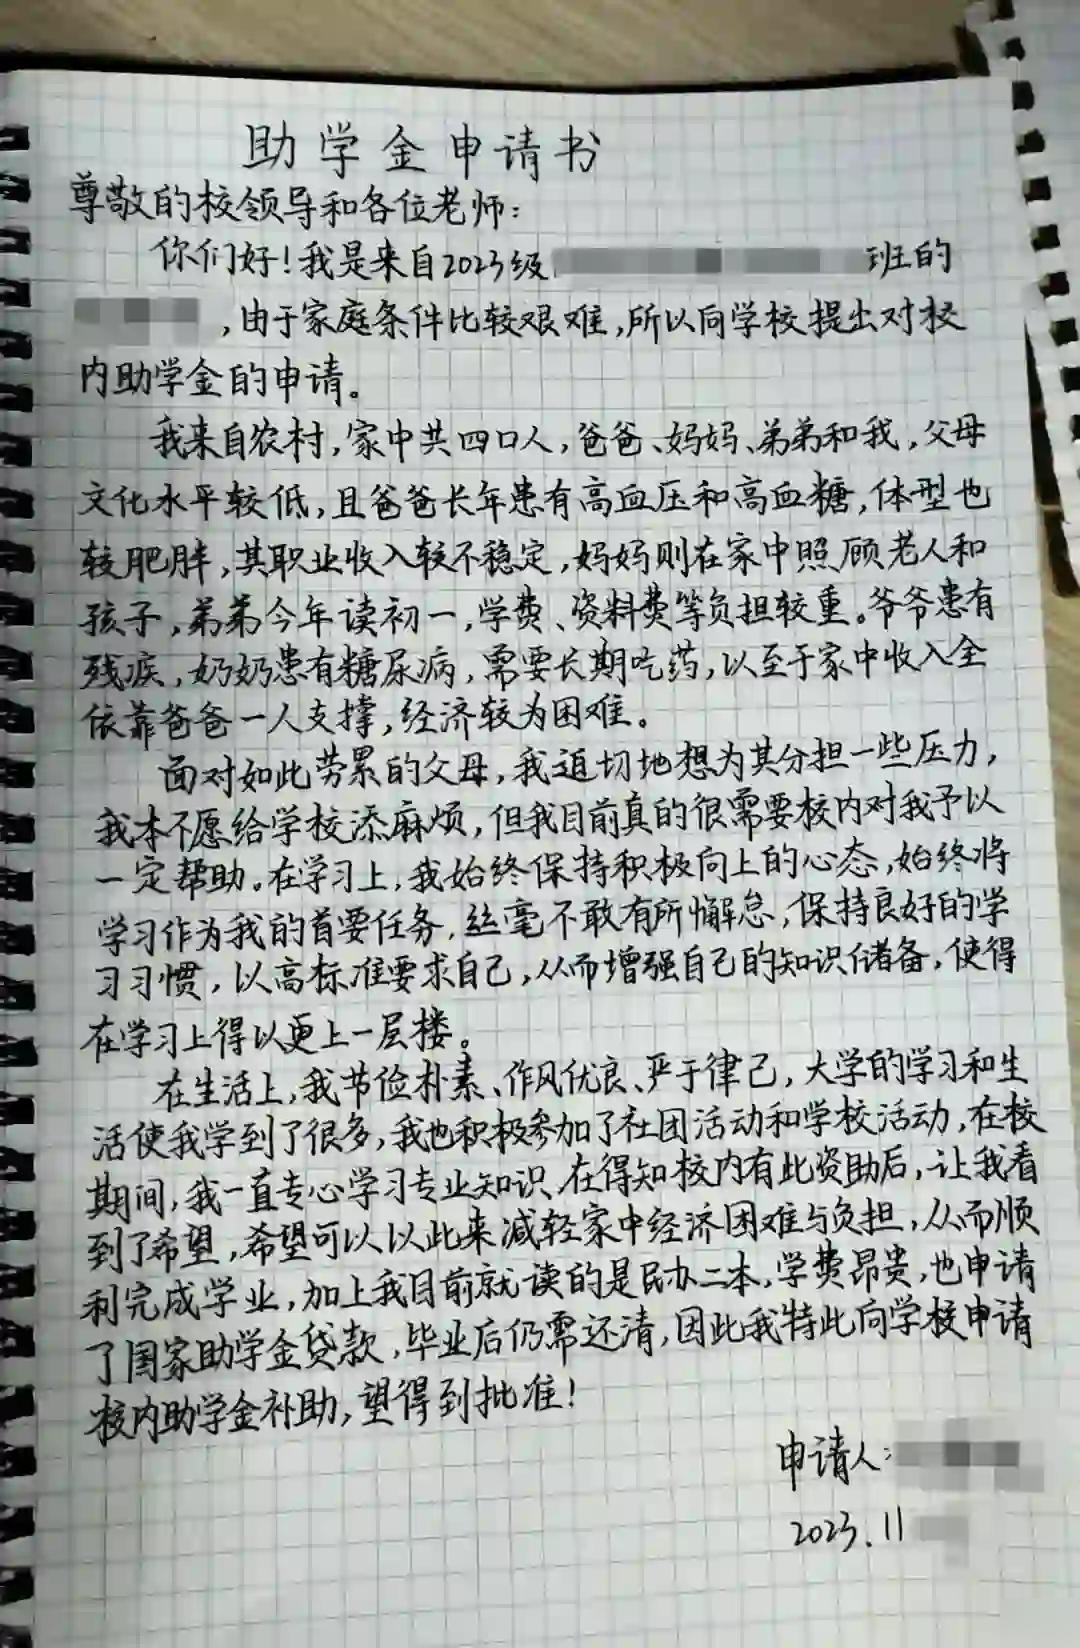 助学金申请书
尊敬的校领导和各位老师：
你们好！我是来自2023级 班的
，由于家庭条件比较艰难，所以向学校提出对校
内助学金的申请。
我来自农村，家中共四口人，爸爸、妈妈、弟弟和我，父母
文化水平较低，且爸爸长年患有高血压和高血糖，体型也
较肥胖，其职业收入较不稳定，妈妈则在家中照顾老人和
孩子，弟弟今年读初一，学费、资料费等负担较重。爷爷患有
残疾，奶奶患有糖尿病，需要长期吃药，以至于家中收入全
依靠爸爸一人支撑，经济较为困难。
面对如此劳累的父母，我迫切地想为其分担一些压力，
我本不愿给学校添麻烦，但我目前真的很需要校内对我予以
一定帮助。在学习上，我始终保持积极向上的心态，始终将
学习作为我的首要任务，丝毫不敢有所懈怠，保持良好的学
习习惯，以高标准要求自己，从而增强自己的知识储备，使得
在学习上得以更上一层楼。
在生活上，我节俭朴素、作风优良、严于律己，大学的学习和生
活使我学到了很多，我也积极参加了社团活动和学校活动，在校
期间，我一直专心学习专业知识，在得知校内有此资助后，让我看
到了希望，希望可以以此来减轻家中经济困难与负担，从而顺
利完成学业，加上我目前就读的是民办二本，学费昂贵，也申请
了国家助学金贷款，毕业后仍需还清，因此我特此向学校申请
校内助学金补助，望得到批准！
申请人：
2023.11